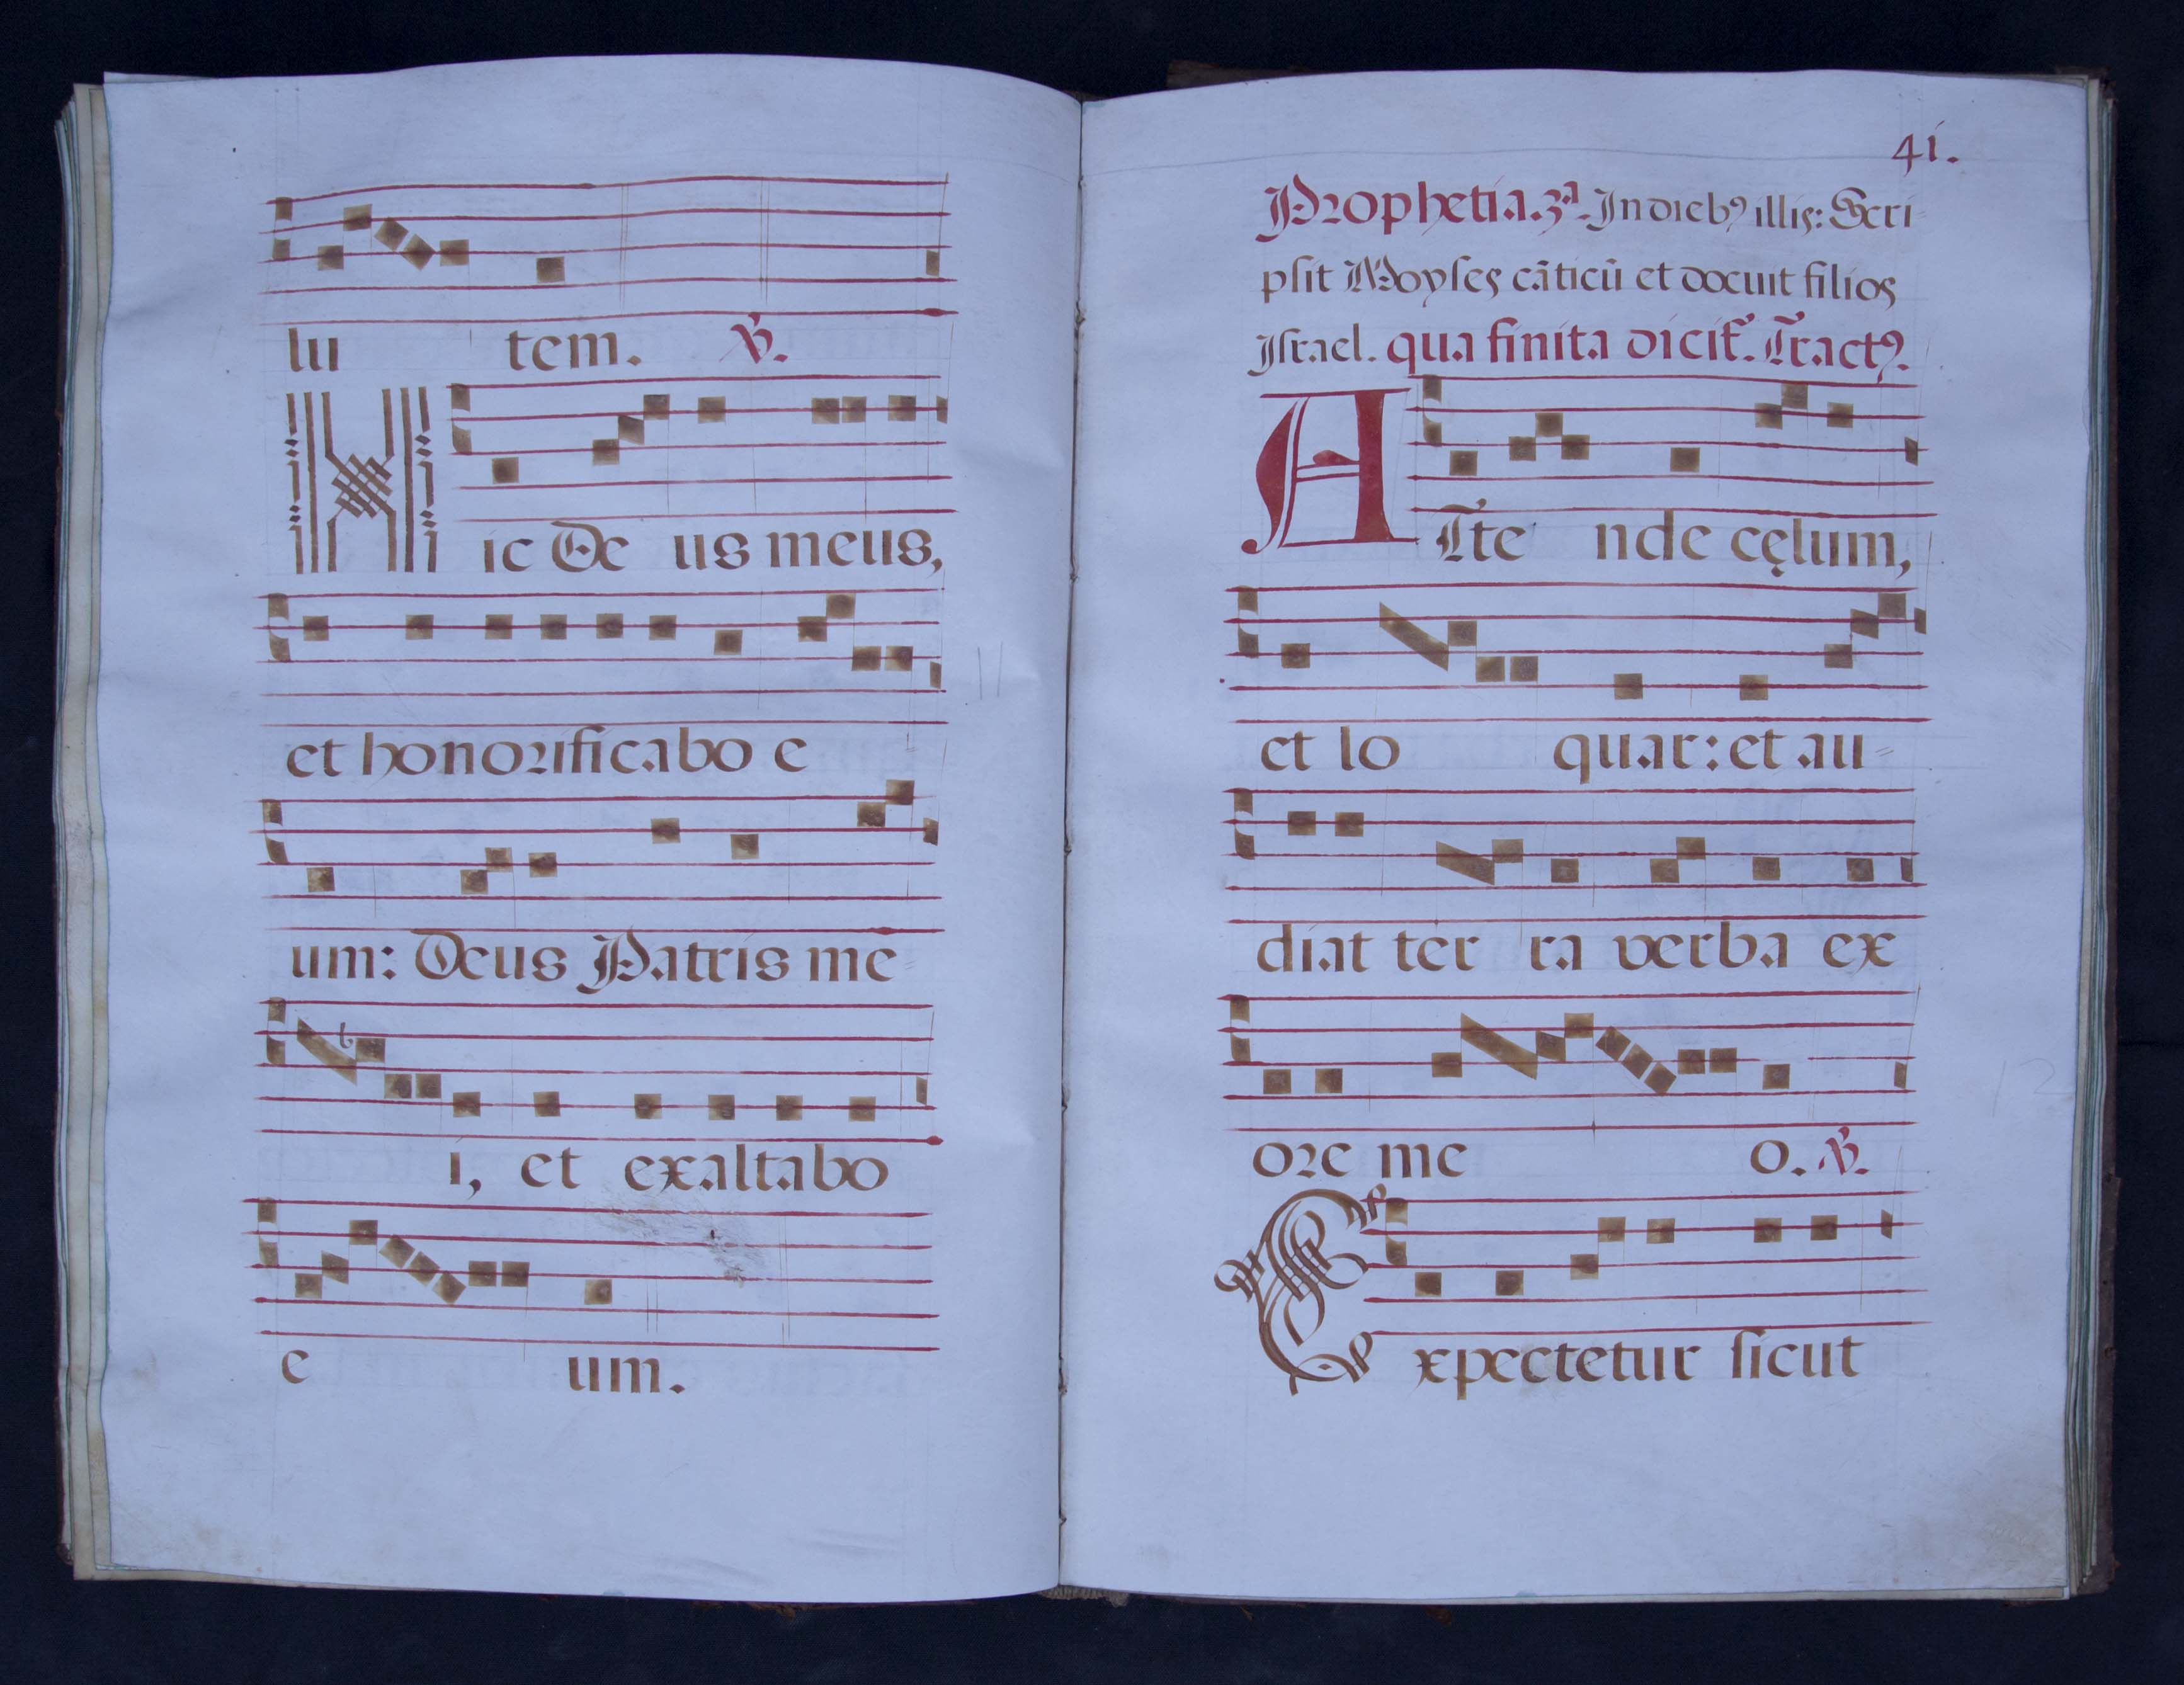 lu tem. ℣.
Hic De us meus,
et honorificabo e
um: Deus Patris me=
i, et exaltabo
e um.
41.
Prophetia. 3ª. In dieb9 illis: Scri=
psit Moyses cãticũ et docuit filios
Israel. qua finita dicit̃. Tract9.
ATte nde cęlum,
et lo quar: et au=
diat ter ra verba ex
ore me o. ℣.
Expectetur sicut